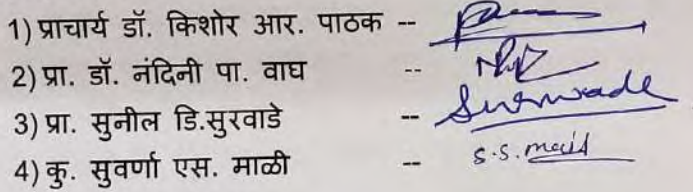 1) प्राचार्य डॉ. किशोर आर. पाठक --
2) प्रा. डॉ. नंदिनी पा. वाघ --
3) प्रा. सुनील डि.सुरवाडे -- Surwade
4) कु. सुवर्णा एस. माळी -- s.s.